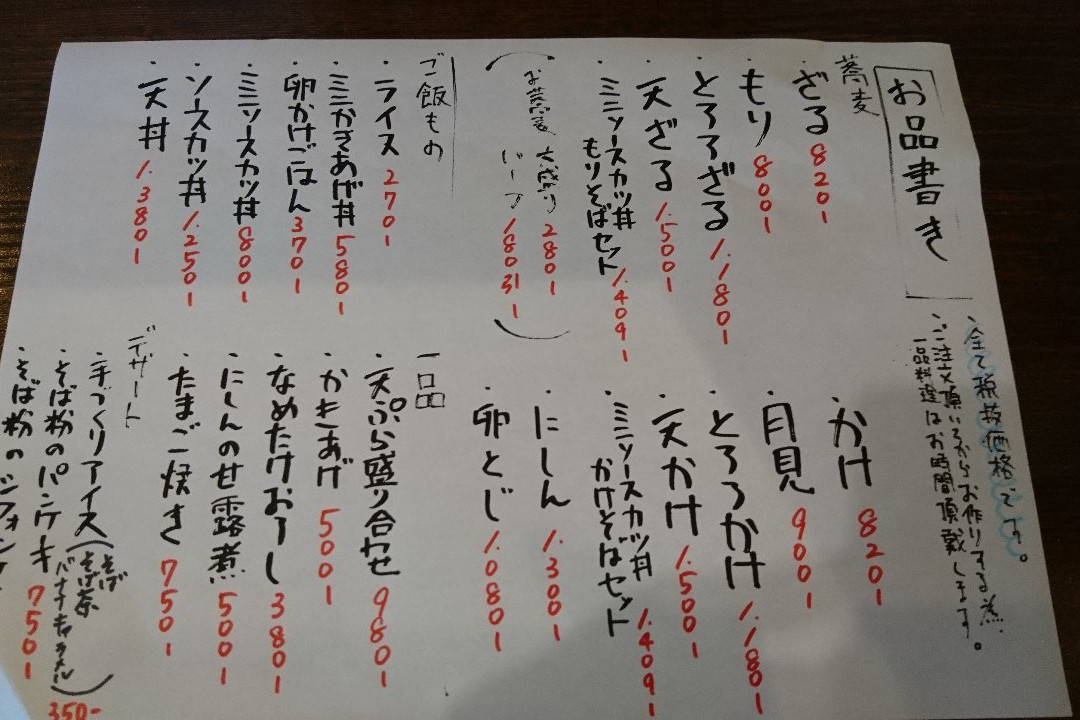 お品書き
・全て税抜価格です。
・ご注文頂いてからお作りする為
一品料理はお時間頂戴します。
蕎麦
・ざる 820-
・もり 800-
・とろろざる 1.180-
・天ざる 1.500-
・ミニソースカツ丼
もりそばセット 1.409-
(お蕎麦 大盛り 280-
ハーフ 180引-)
・かけ 820-
・月見 900-
・とろろかけ 1.180-
・天かけ 1.500-
・ミニソースカツ丼
かけそばセット 1.409-
・にしん 1.300-
・卵とじ 1.080-
ご飯もの
・ライス 270-
・ミニかきあげ丼 580-
・卵かけごはん 370-
・ミニソースカツ丼 800-
・ソースカツ丼 1.250-
・天丼 1.380-
一品
・天ぷら盛り合せ 980-
・かきあげ 500-
・なめたけおろし 380-
・にしんの甘露煮 500-
・たまご焼き 750-
デザート
・手づくりアイス(そば
そば茶
バナナキャラメル) 350-
・そば粉のパンケーキ 750-
・そば粉のシフォン